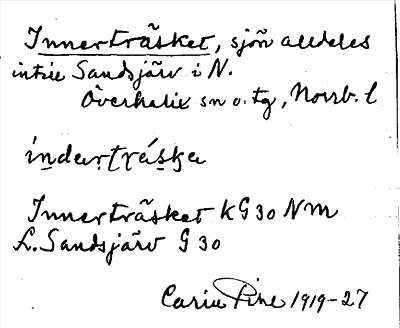 Innerträsket, sjön alldeles
intill Sandsjärv i N.
Överkalix sn o. tg, Norrb. l
Innerträsket KG 30 NM
L. Sandsjärv G 30
Carin Pihl 1919-27